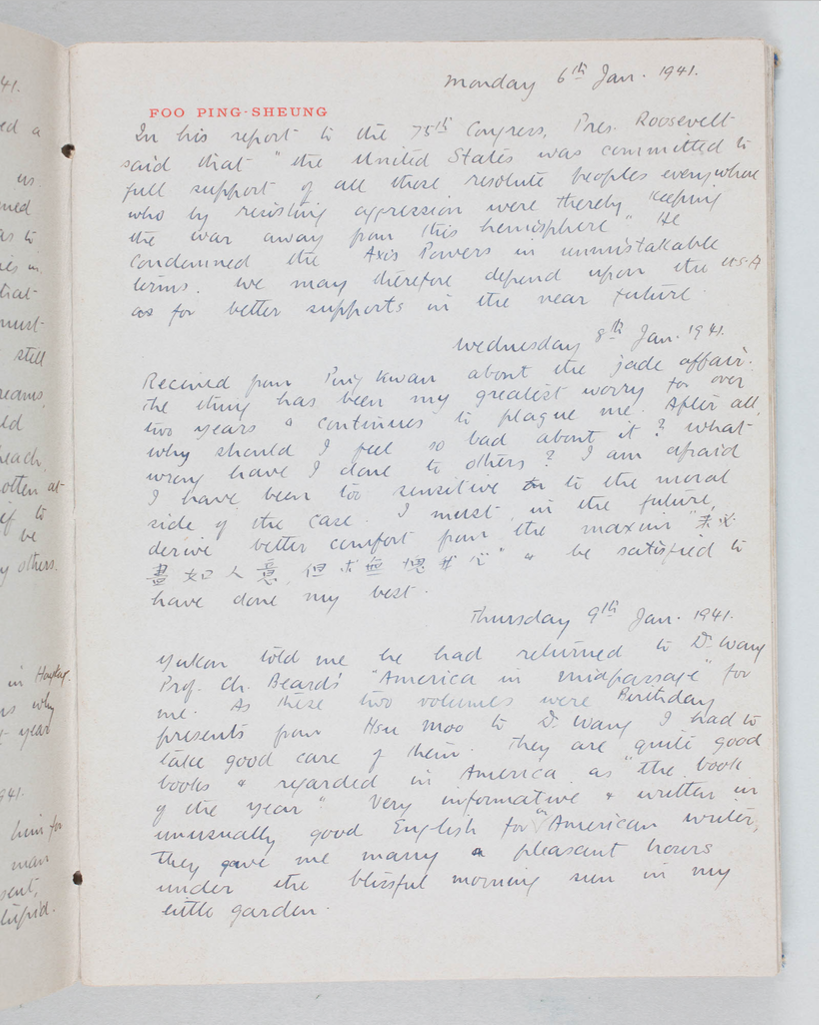 41.
ed a
us
med
as to
ies in
that
must
still
reams,
ld
each,
otten at
ef to
be
y others.
in Hong
ns why
t year
941.
him for
man
sent,
tupid.
Monday 6th Jan. 1941.
FOO PING-SHEUNG
In his report to the 75th Congress, Pres. Roosevelt
said that "the United States was committed to
full support of all those resolute peoples everywhere
who by resisting aggression were thereby keeping
the war away from this hemisphere". He
condemned the Axis Powers in unmistakable
terms. We may therefore depend upon the U.S.A
as for better supports in the near future.
Wednesday 8th Jan. 1941.
Received from Ping Kwan about the jade affair.
The thing has been my greatest worry for over
two years & continues to plague me. After all,
why should I feel so bad about it? What
wrong have I done to others? I am afraid
I have been too sensitive to the moral
side of the case. I must, in the future,
derive better comfort from the maxim "未必
盡如人意, 但求無愧我心" & be satisfied to
have done my best.
Thursday 9th Jan. 1941.
Yukon told me he had returned to Dr. Wang
Prof. Ch. Beard's "America in midpassage" for
me. As these two volumes were Birthday
presents from Hsu Moo to Dr. Wang I had to
take good care of them. They are quite good
books & regarded in America as "the book
of the year". Very informative & written in
unusually good English for American writer,
they gave me many a pleasant hours
under the blissful morning sun in my
little garden.